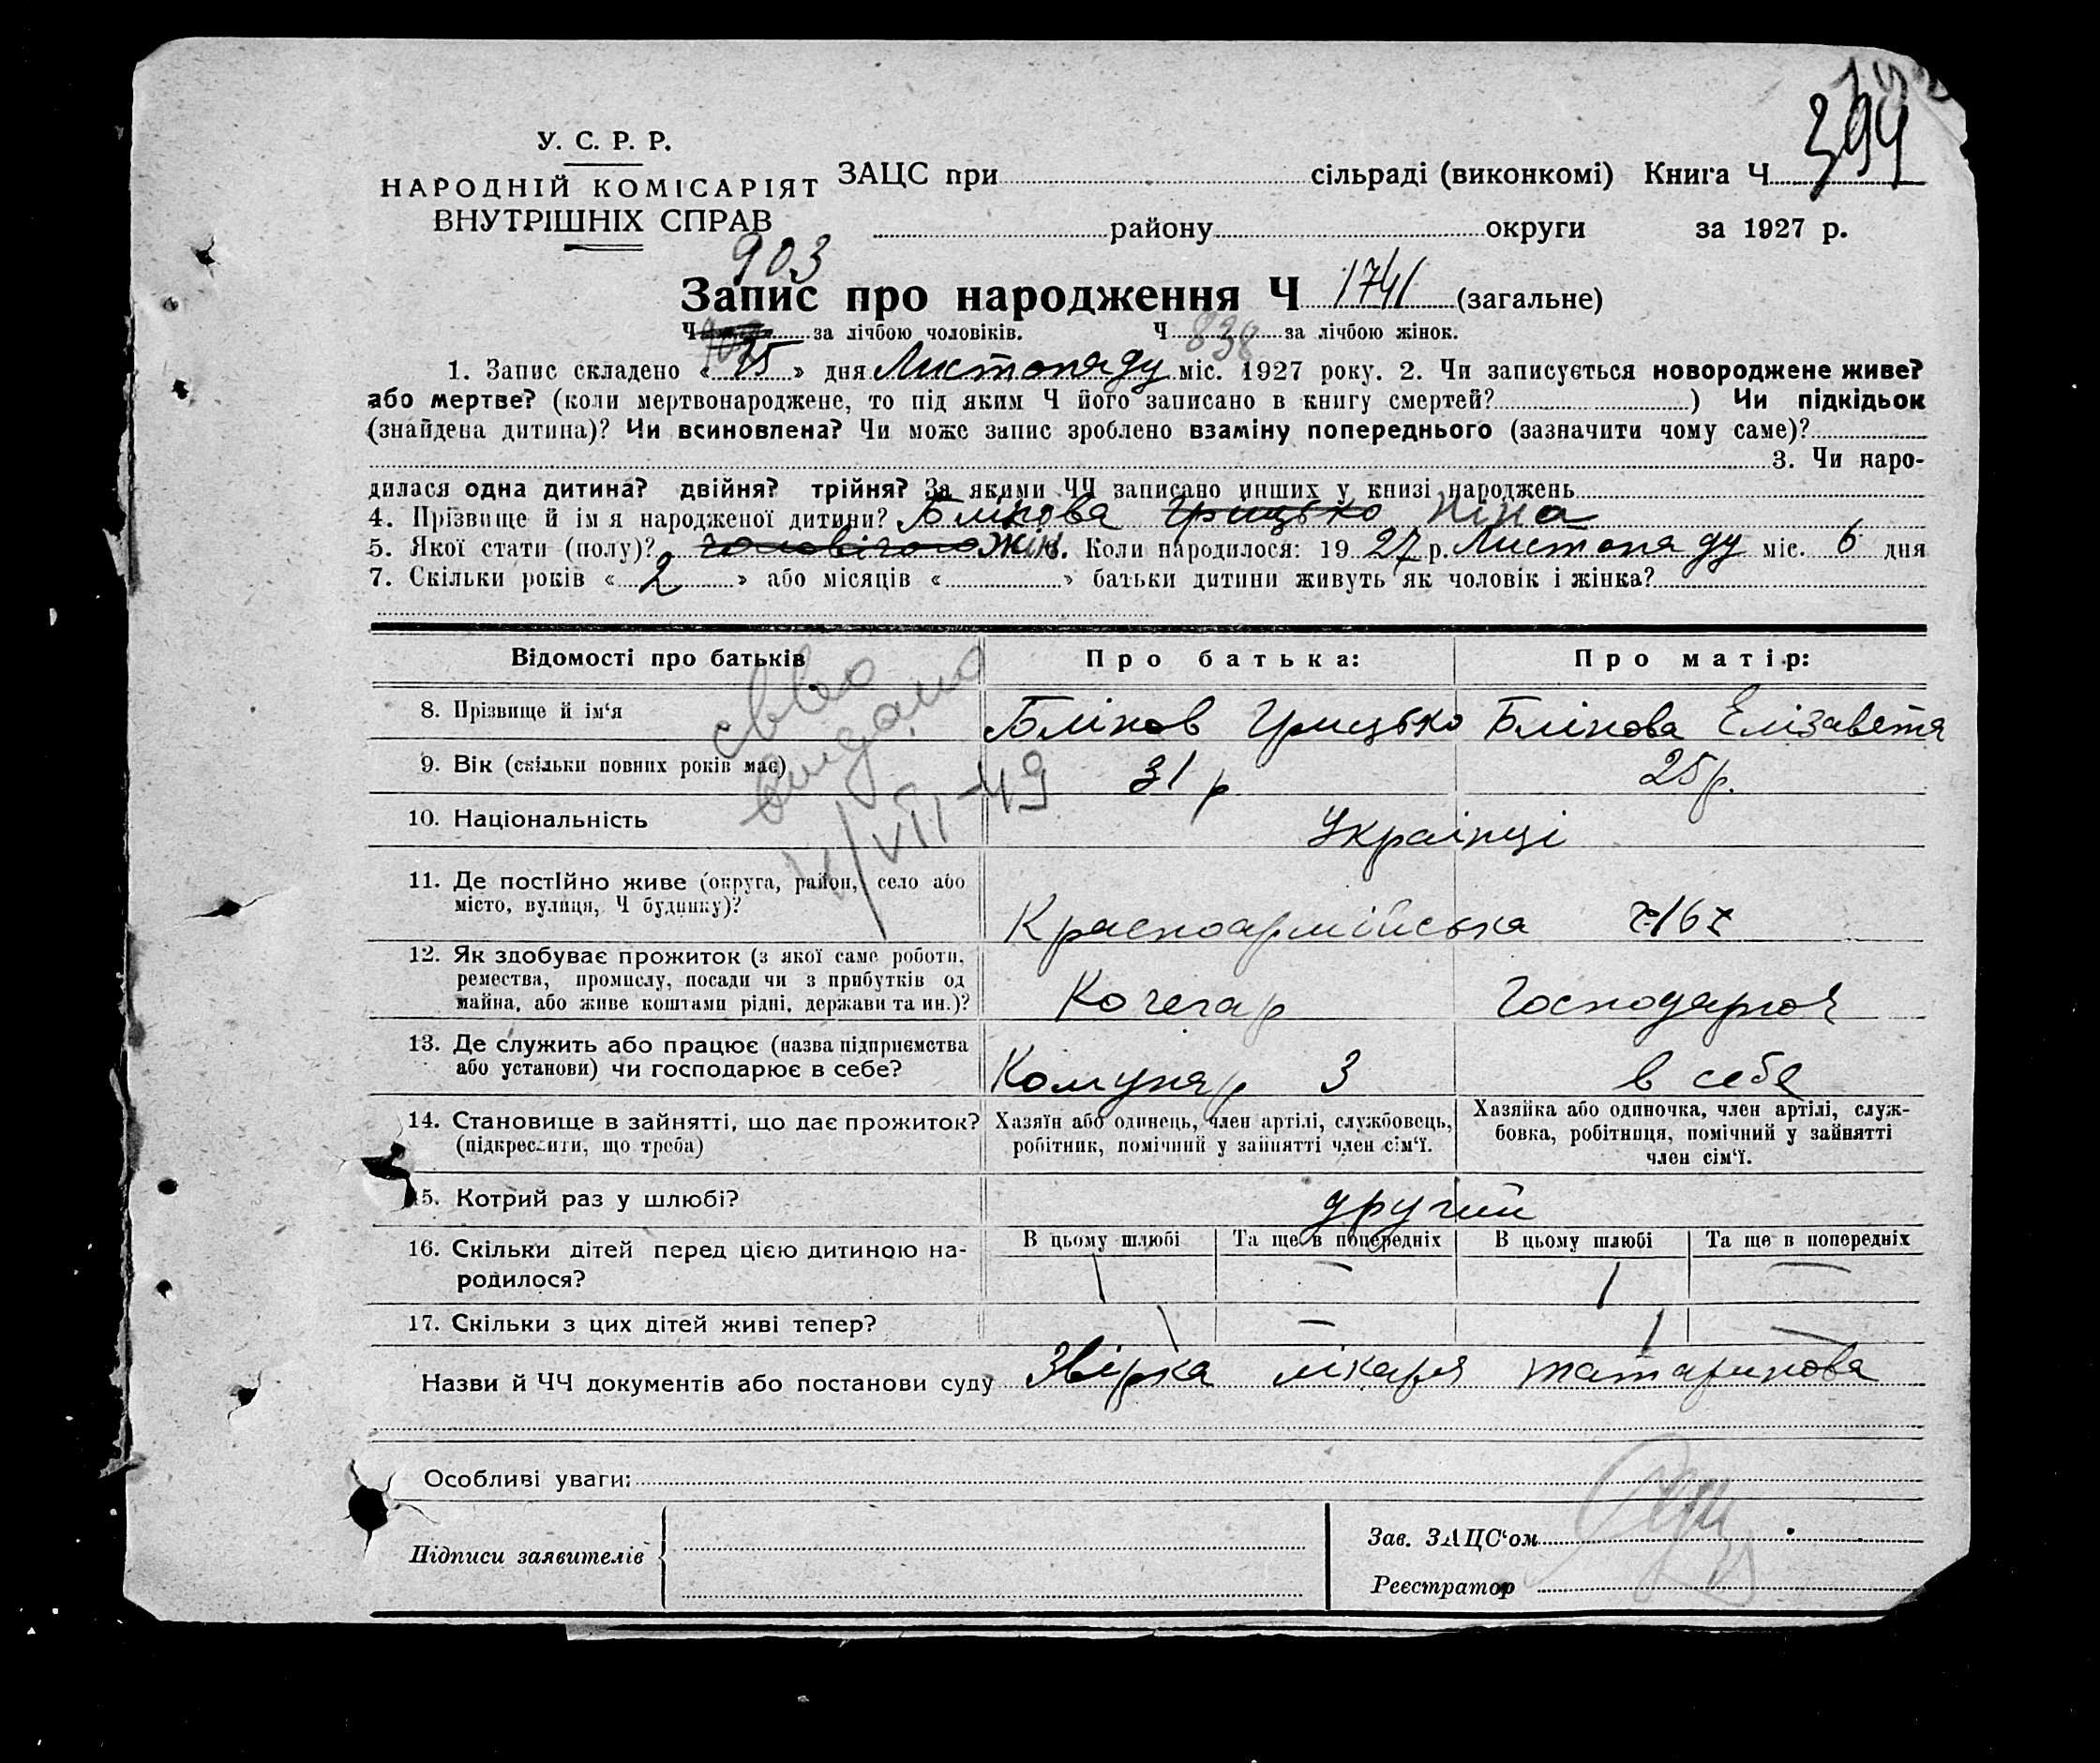 394
У. С. Р. Р.
НАРОДНІЙ КОМІСАРІЯТ
ВНУТРІШНІХ СПРАВ
ЗАЦС при сільраді (виконкомі) Книга Ч
району округи за 1927 р.
903
Запис про народження Ч 1741 (загальне)
Ч за лічбою чоловіків. Ч 838 за лічбою жінок.
1. Запис складено « 25 » дня Листопаду міс. 1927 року. 2. Чи записується новороджене живе?
або мертве? (коли мертвонароджене, то під яким Ч його записано в книгу смертей? ) Чи підкідьок
(знайдена дитина)? Чи всиновлена? Чи може запис зроблено взаміну попереднього (зазначити чому саме)?
3. Чи наро-
дилася одна дитина? двійня? трійня? За якими ЧЧ записано инших у книзі народжень
4. Прізвище й ім я народженої дитини? Блінова Грицько Ніна
5. Якої стати (полу)? чоловічого жін. Коли народилося: 19 27 р. Листопаду міс. 6 дня
7. Скільки років « 2 » або місяців « » батьки дитини живуть як чоловік і жінка?
Відомості про батьків Про батька: Про матір:
8. Прізвище й ім‘я Блінов Грицько Блінова Елізавета
9. Вік (скільки повних років має) 31 р 25 р.
видано
VII-49
10. Національність Українці
11. Де постійно живе (округа, район, село або
місто, вулиця, Ч будинку)? Красноармійська 16
12. Як здобуває прожиток (з якої саме роботи,
ремества, промислу, посади чи з прибутків од
майна, або живе коштами рідні, держави та ин.)? Кочегар Господарює
13. Де служить або працює (назва підприємства
або установи) чи господарює в себе? Комунар 3 в себе
14. Становище в зайнятті, що дає прожиток? (підкреслити, що треба)
Хазяїн або одинець, член артілі, службовець,
робітник, помічний у зайнятті член сім‘ї.
Хазяйка або одиночка, член артілі, служ-
бовка, робітниця, помічний у зайнятті
член сім‘ї.
15. Котрий раз у шлюбі? другий
16. Скільки дітей перед цією дитиною на-
родилося?
В цьому шлюбі Та ще в попередніх В цьому шлюбі Та ще в попередніх
1 — 1 —
17. Скільки з цих дітей живі тепер? 1 — 1 —
Назви й ЧЧ документів або постанови суду Звірка лікаря Татаринова
Особливі уваги:
Підписи заявителів
Зав. ЗАЦС‘ом
Реєстратор